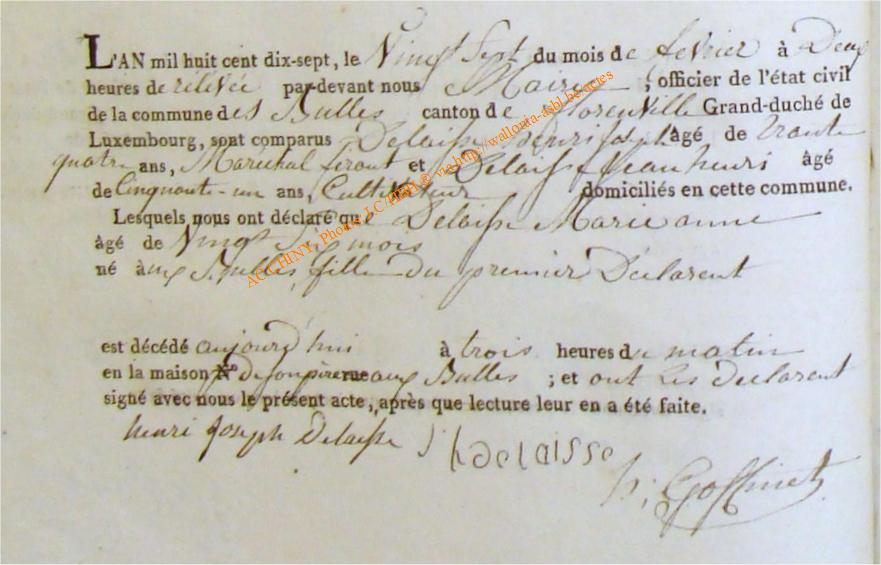 L'AN mil huit cent dix-sept, le Vingt Sept du mois de fevrier à Deux
heures de rélévée par-devant nous Maire, officier de l'état civil
de la commune des Bulles canton de florenville Grand-duché de
Luxembourg, sont comparus Delaisse henri joseph âgé de trante
quatre ans, Marechal feront et Delaisse jean henri âgé
de Cinquant-un ans, Cultivateur domiciliés en cette commune.
Lesquels nous ont déclaré que Delaisse Marie anne
âgé de Vingt Six mois
né aux Bulles, fille du premier Déclarent
est décédé aujourd'hui à trois heures du matin
en la maison N° De son pere rue aux Bulles ; et ont Les declarent
signé avec nous le présent acte, après que lecture leur en a été faite.
henri Joseph Delaisse J h delaisse
h; Goffinet
ACCHINY, Photos J.C © via http://wallonia-asbl.be/actes